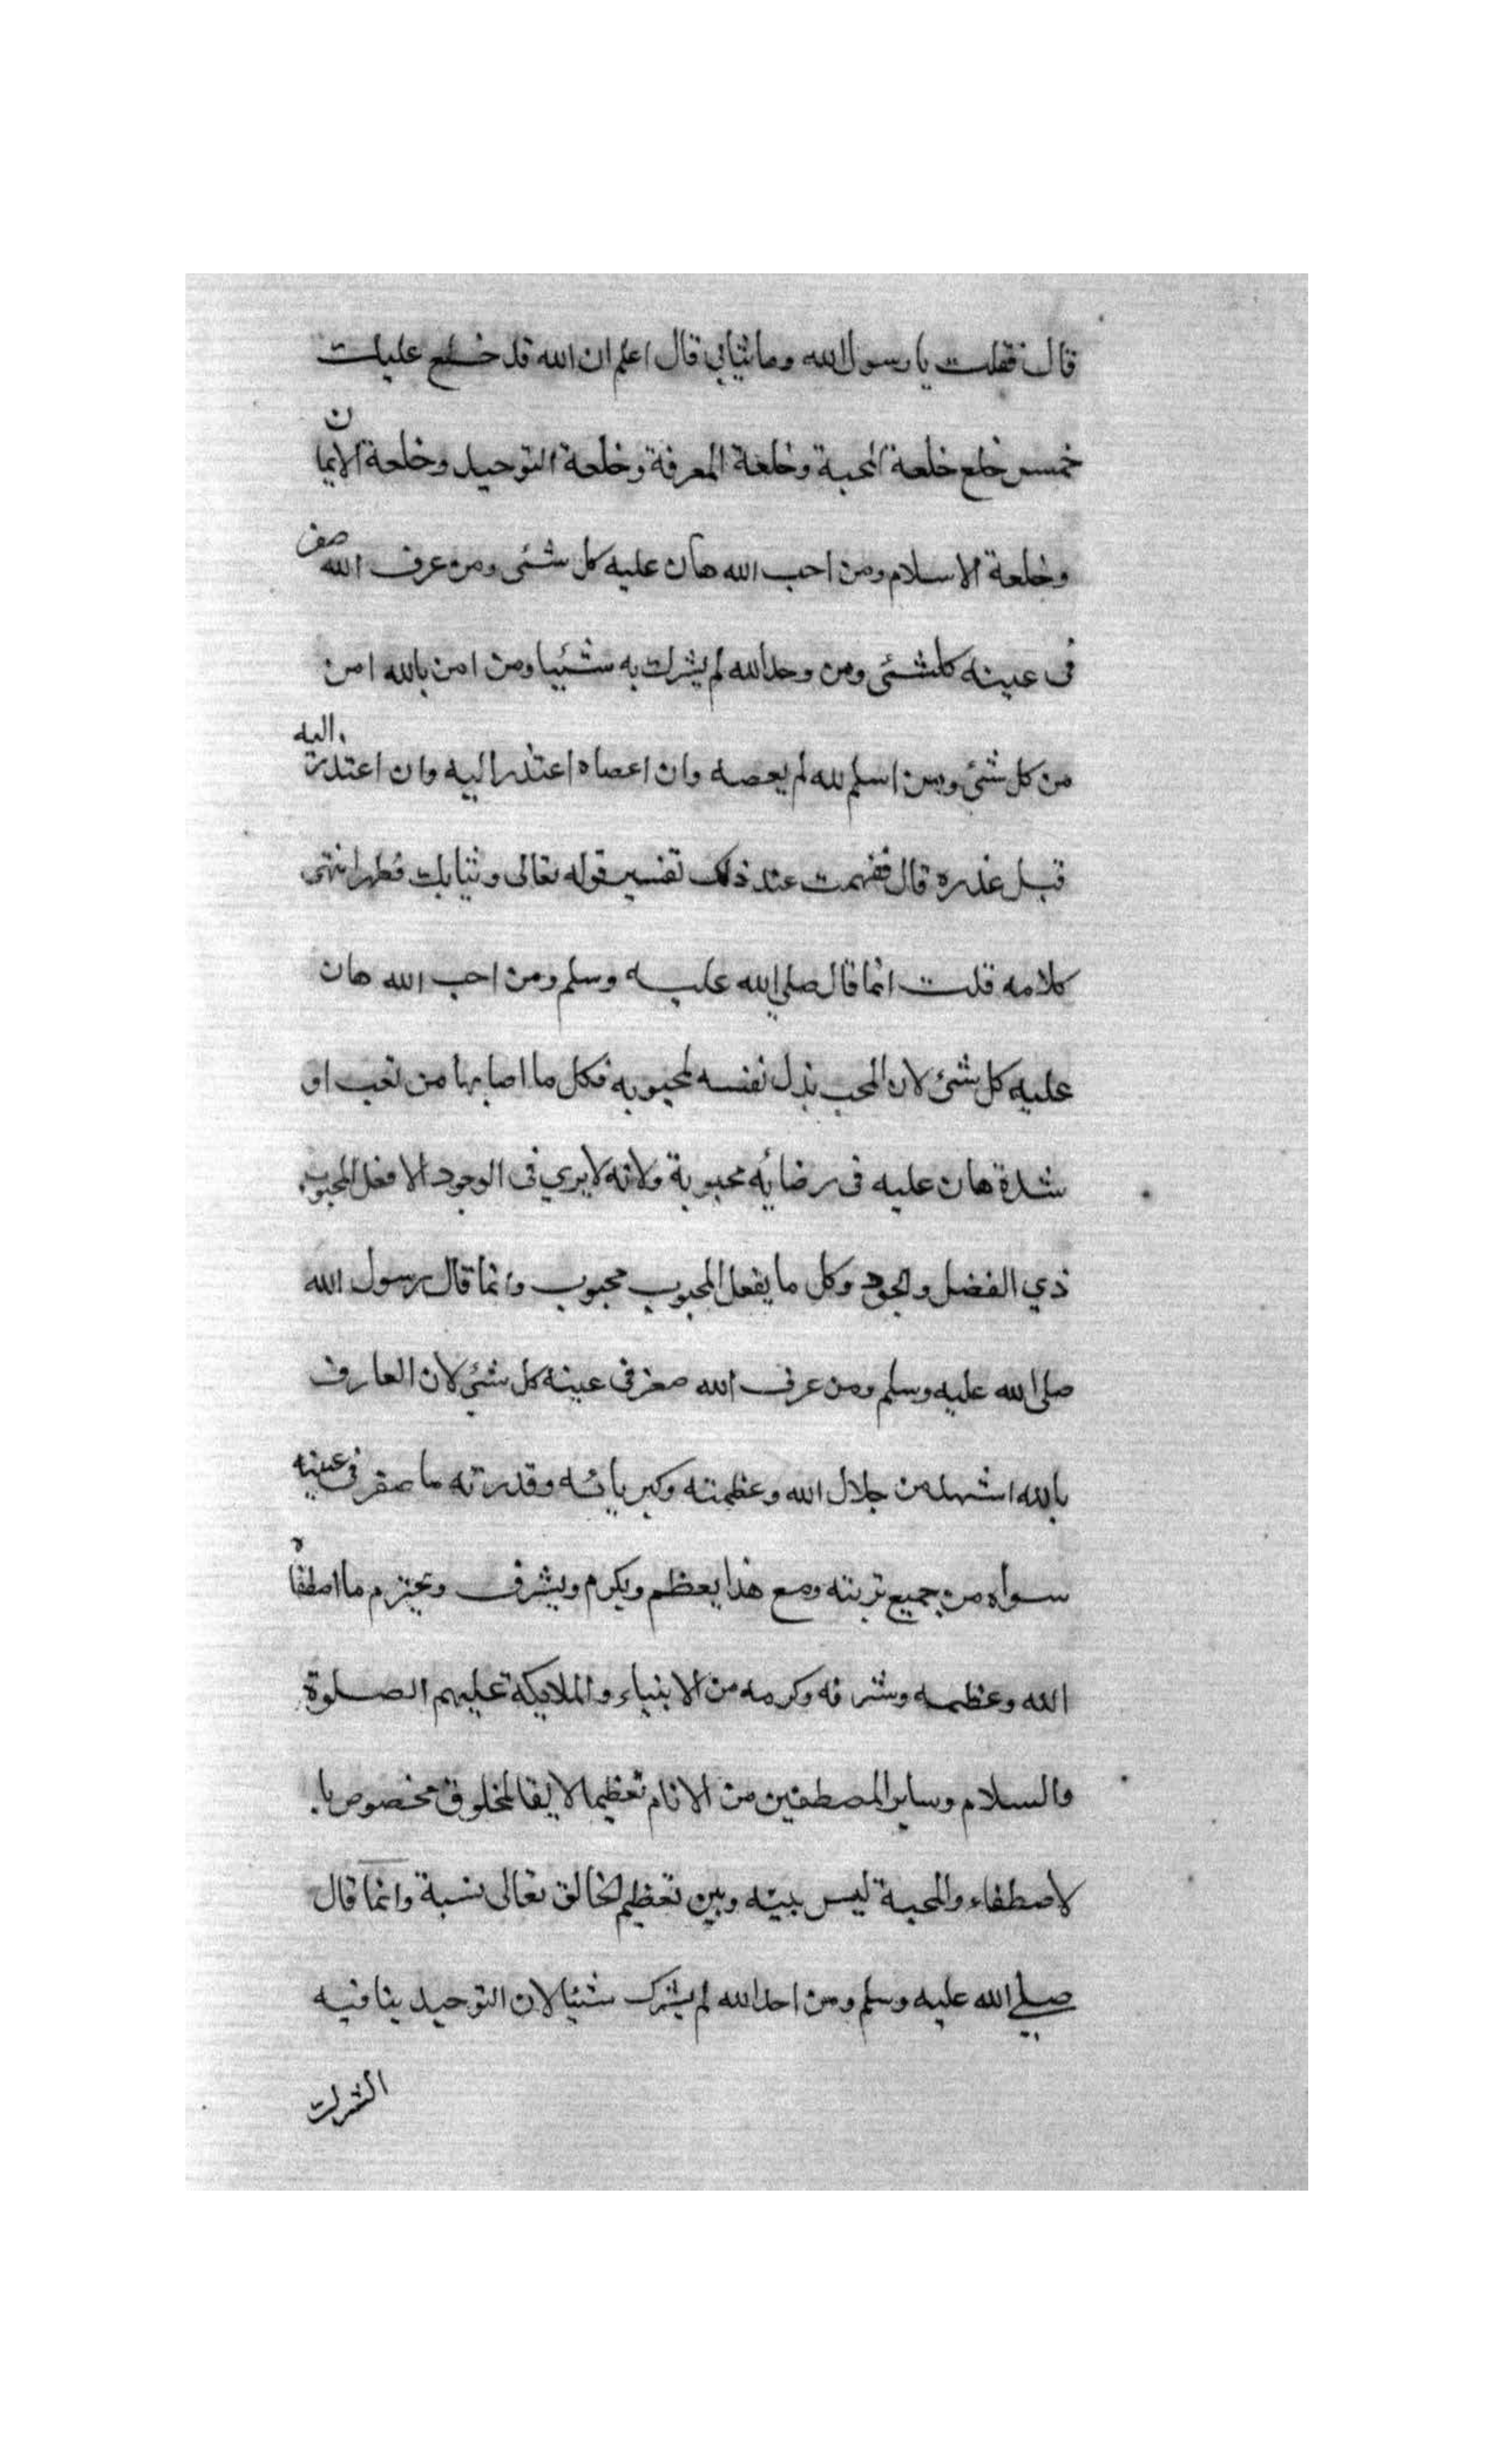 قال فقلت يا رسول الله وما ثيابي قال اعلم ان الله قد خلع عليك
خمس خلع خلعة المحبة وخلعة المعرفة وخلعة التوحيد وخلعة الايمان
وخلعة الاسلام ومن احب الله هان عليه كل شئى ومن عرف الله صغر
فى عينه كلشئى ومن وحد الله لم يشرك به شئيا ومن امن بالله امن
من كل شئى ومن اسلم لله لم يعصه وان اعصاه اعتذر اليه وان اعتذر اليه
قبل عذره قال ففهمت عند ذلك تفسير قوله تعالى وثيابك فطهر انتهى
كلامه قلت انما قال صلى الله عليه وسلم ومن احب الله هان
عليه كل شئ لان المحب بذل نفسه لمحبوبه فكل ما اصابها من تعب او
شدة هان عليه فى رضائه محبوبة ولانه لا يري فى الوجود الا فعل المحبوب
ذي الفضل والجود وكل ما يفعل المحبوب محبوب وانما قال رسول الله
صلى الله عليه وسلم ومن عرف الله صغر فى عينه كل شئى لان العارف
بالله اشهد من جلال الله وعظمته وكبريائه وقدرته ما صغر فى عينه
سواه من جميع تربته ومع هذا يعظم ويكرم ويشرف ويحترم ما اصطفاه
الله وعظمه وشرفه وكرمه من الانبياء والملايكة عليهم الصلوة
والسلام وساير المصطفين من الانام تعظيما لايقا لمخلوق مخصوص با
لاصطفاء والمحبة ليس بينه وبين تعظيم الخالق تعالى نسبة وانما قال
صلى الله عليه وسلم ومن احد الله لم يشرك شئيا لان التوحيد ينافيه
الشرك